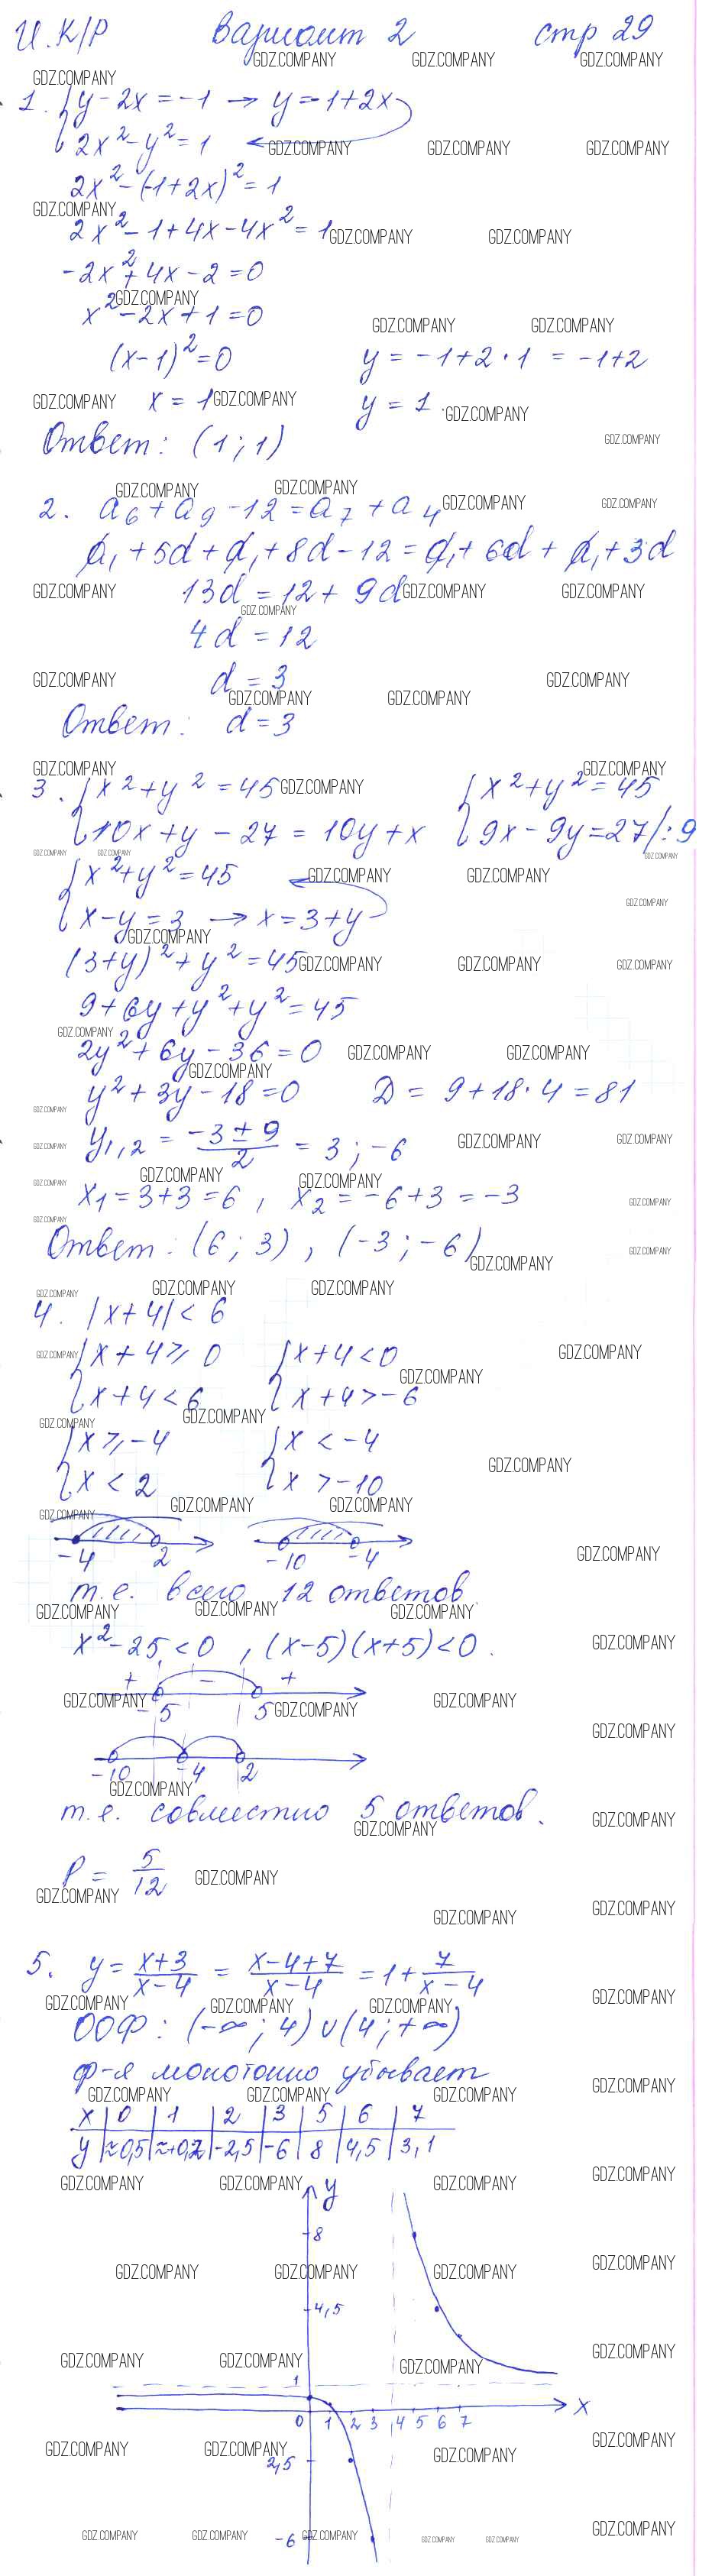 И.К/Р вариант 2 стр 29
1. { y - 2x = -1 → y = -1 + 2x
{ 2x² - y² = 1
2x² - (-1+2x)² = 1
2x² - 1 + 4x - 4x² = 1
-2x² + 4x - 2 = 0
x² - 2x + 1 = 0
(x-1)² = 0 y = -1 + 2·1 = -1+2
x = 1 y = 1
Ответ: (1; 1)
2. a₆ + a₉ - 12 = a₇ + a₄
a₁ + 5d + a₁ + 8d - 12 = a₁ + 6d + a₁ + 3d
13d = 12 + 9d
4d = 12
d = 3
Ответ: d = 3
3. { x² + y² = 45 { x² + y² = 45
{ 10x + y - 27 = 10y + x { 9x - 9y = 27 /:9
{ x² + y² = 45
{ x - y = 3 → x = 3 + y
(3+y)² + y² = 45
9 + 6y + y² + y² = 45
2y² + 6y - 36 = 0
y² + 3y - 18 = 0 D = 9 + 18·4 = 81
y₁,₂ = (-3 ± 9)/2 = 3; -6
x₁ = 3+3 = 6, x₂ = -6+3 = -3
Ответ: (6; 3), (-3; -6)
4. |x+4| < 6
{ x + 4 ≥ 0 { x + 4 < 0
{ x + 4 < 6 { x + 4 > -6
{ x ≥ -4 { x < -4
{ x < 2 { x > -10
-4 2 -10 -4
т.е. всего 12 ответов
x² - 25 < 0, (x-5)(x+5) < 0.
+ - +
-5 5
-10 -4 2
т.е. совместно 5 ответов.
P = 5/12
5. y = (x+3)/(x-4) = (x-4+7)/(x-4) = 1 + 7/(x-4)
ООФ: (-∞; 4) ∪ (4; +∞)
ф-я монотонно убывает
x | 0 | 1 | 2 | 3 | 5 | 6 | 7
y | ≈0,5 | ≈+0,2 | -2,5 | -6 | 8 | 4,5 | 3,1
y
8
4,5
1
x
0 1 2 3 4 5 6 7
2,5
-6
GDZ.COMPANY